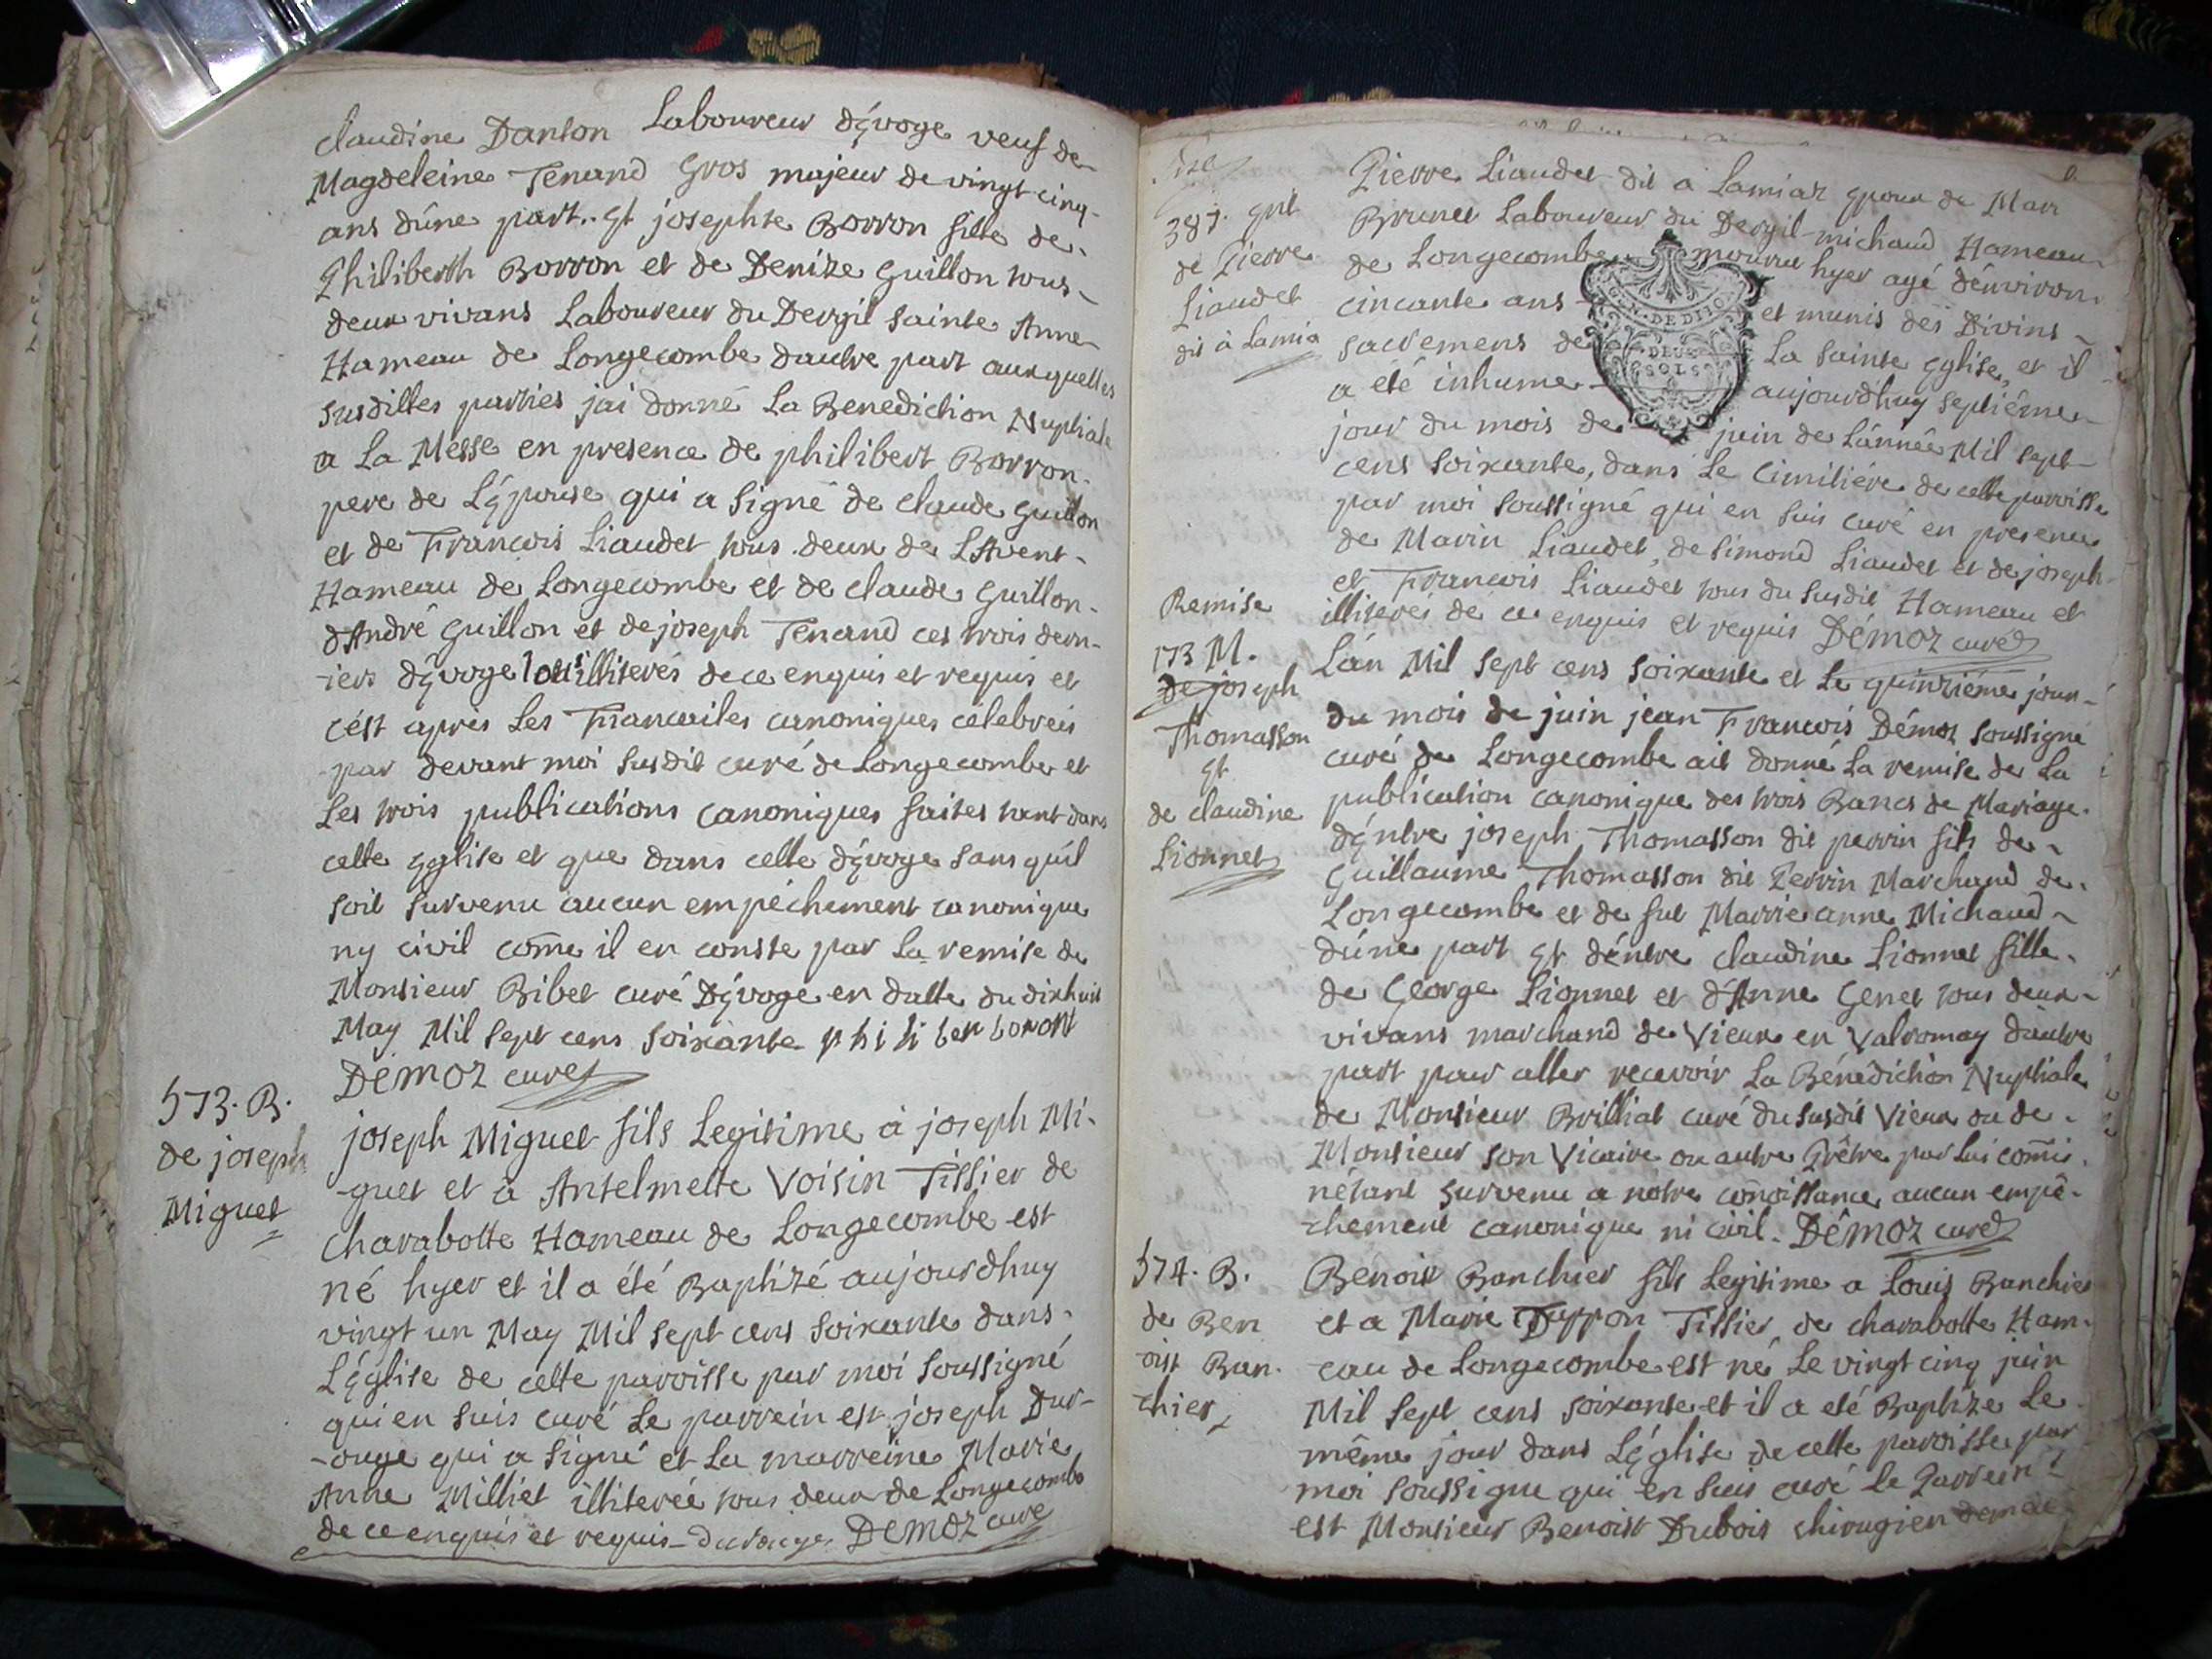 claudine Danton Laboureur dÿvoge veuf de
Magdeleine Tenand Gros majeur de vingt cinq
ans dúne part.. Et josephte Borron fille de
Philiberth Borron et de Denize Guillon tous
deux vivans Laboureur du Dergil sainte Anne
Hameau de Longecombe dautre part auxquelles
susdittes parties jai donné La Benediction Nuptiale
a La Messe en presence de philibert Borron
pere de Lépouse qui a signé de claude Guillon
et de Francois Liaudet tous deux de LAvent
Hameau de Longecombe et de claude Guillon
dAndré Guillon et de joseph Tenand ces trois dern-
-iers dÿvoge tous illiterés de ce enquis et requis et
cést apres Les Fiancailes canoniques célebreés
par devant moi susdit curé de Longecombe et
Les trois publications canoniques faites tant dans
cette Eglise et que dans celle dÿvoge sans quíl
soit survenu aucun empéchement canonique
ny civil come il en conste par La remise de
Monsieur Bibet curé Dÿvoge en datte du dixhuit
May Mil sept cens soixante philiber boron
DEMOZ curé
573. B.
de joseph
Miguet
joseph Miguet fils Legitime à joseph Mi-
-guet et à Antelmette Voisin Tissier de
charabotte Hameau de Longecombe est
né hyer et il a été Baptizé aujourdhuy
vingt un May Mil sept cens soixante dans
LÉglise de cette parroisse par moi soussigné
qui en suis curé Le parrein est joseph Dur-
-ouge qui a signé et La marreine Marie
Anne Milliet illiterée tous deux de Longecombe
de ce enquis et requis DEMOZ curé
387. Ent
de Pierre
Liaudet
dit à Lamia
Pierre Liaudet dit a Lamiaz epoux de Mari
Brunet Laboureur du Dergil-michaud Hameau
de Longecombe mouru hyer agé dénviron
cincante ans et munis des Divins
sacremens de La sainte Eglise, et il
a été inhumé aujourdhuy septiéme
jour du mois de juin de Lánnée Mil sept
cens soixante, dans Le Cimitiére de cette parroisse
par moi soussigné qui en suis curé en presence
de Marin Liaudet, de Simond Liaudet et de joseph
et Francois Liaudet tous du susdit Hameau et
illiterés de ce enquis et requis DÉMOZ curé
Remise
173 M.
de joseph
Thomasson
Et
de claudine
Lionnet
Lán Mil sept cens soixante et Le quinziéme jour
du mois de juin jean Francois Démoz soussigné
curé de Longecombe ait donné La remise de La
publication canonique des trois Bancs de Mariage
dÉntre joseph Thomasson dit perrin fils de
Guillaume Thomasson dit Perrin Marchand de
Longecombe et de fut Marrie anne Michaud
dúne part Et déntre claudine Lionnet fille
de George Lionnet et dAnne Genet tous deux
vivans marchand de Vieux en Valromay dautre
part pour aller recevoir La Bénédiction Nuptiale
de Monsieur Brilliat curé du susdit Vieux ou de
Monsieur son Vicaire ou autre Prêtre par Lui comis
nétant survenu a notre conoissance aucun empê-
-chement canonique ni civil. DÊMOZ curé
574. B.
de Ben
oist Ban.
chier
Benoist Banchier fils Legitime a Louis Banchier
et a Marie Tissier de charabotte Ham-
eau de Longecombe est né Le vingt cinq juin
Mil sept cens soixante et il a eté Baptize Le
même jour dans LÉglise de cette parroisse par
moi soussigne qui en suis curé le Parrein
est Monsieur Benoist Dubois chirugien
GEN. DE DIJON
DEUX
SOLS